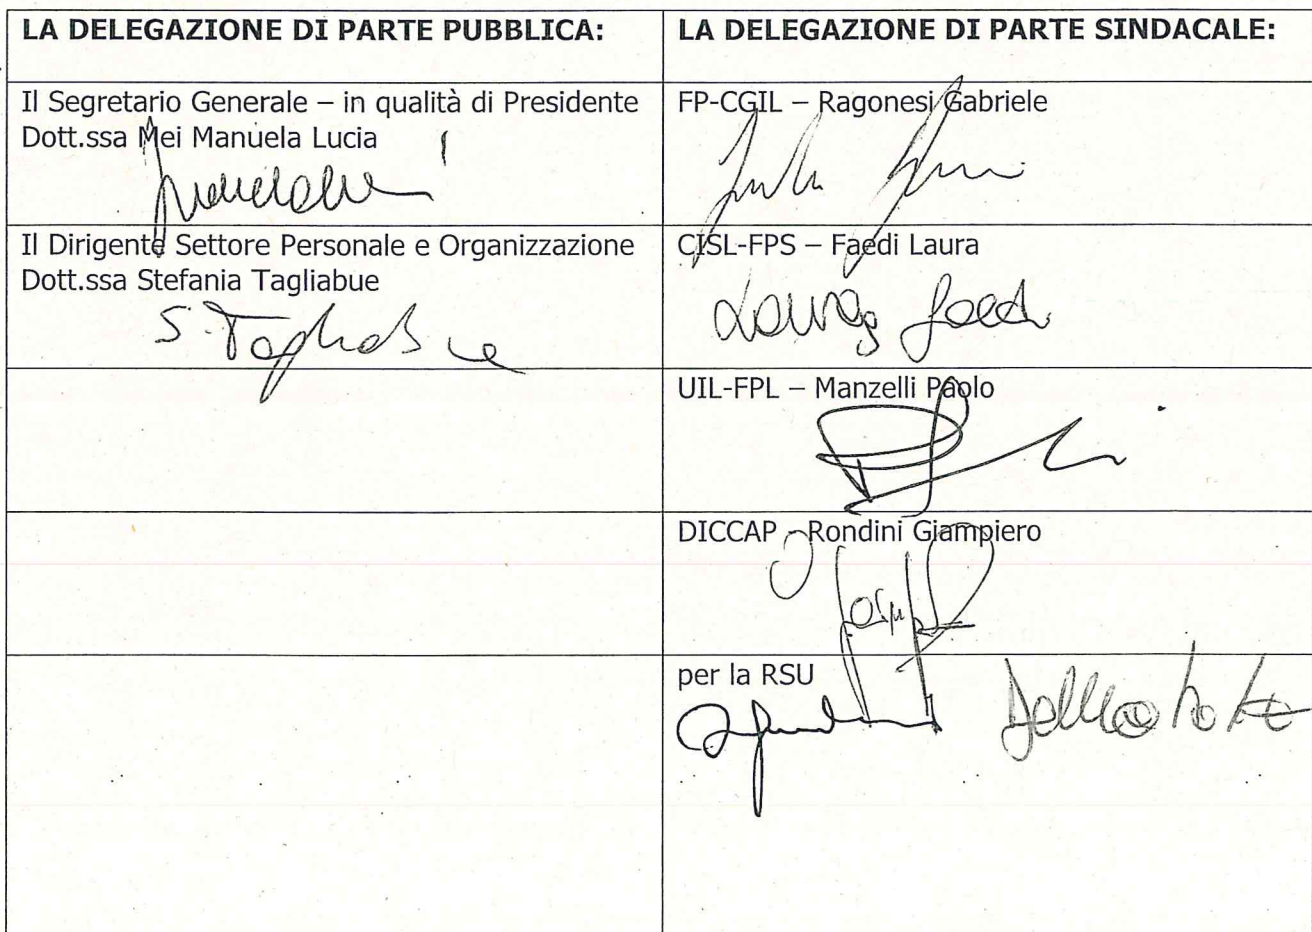 LA DELEGAZIONE DI PARTE PUBBLICA:
LA DELEGAZIONE DI PARTE SINDACALE:
Il Segretario Generale – in qualità di Presidente
Dott.ssa Mei Manuela Lucia
FP-CGIL – Ragonesi Gabriele
Il Dirigente Settore Personale e Organizzazione
Dott.ssa Stefania Tagliabue
S. Tagliabue
CISL-FPS – Faedi Laura
Laura Faedi
UIL-FPL – Manzelli Paolo
DICCAP – Rondini Giampiero
per la RSU